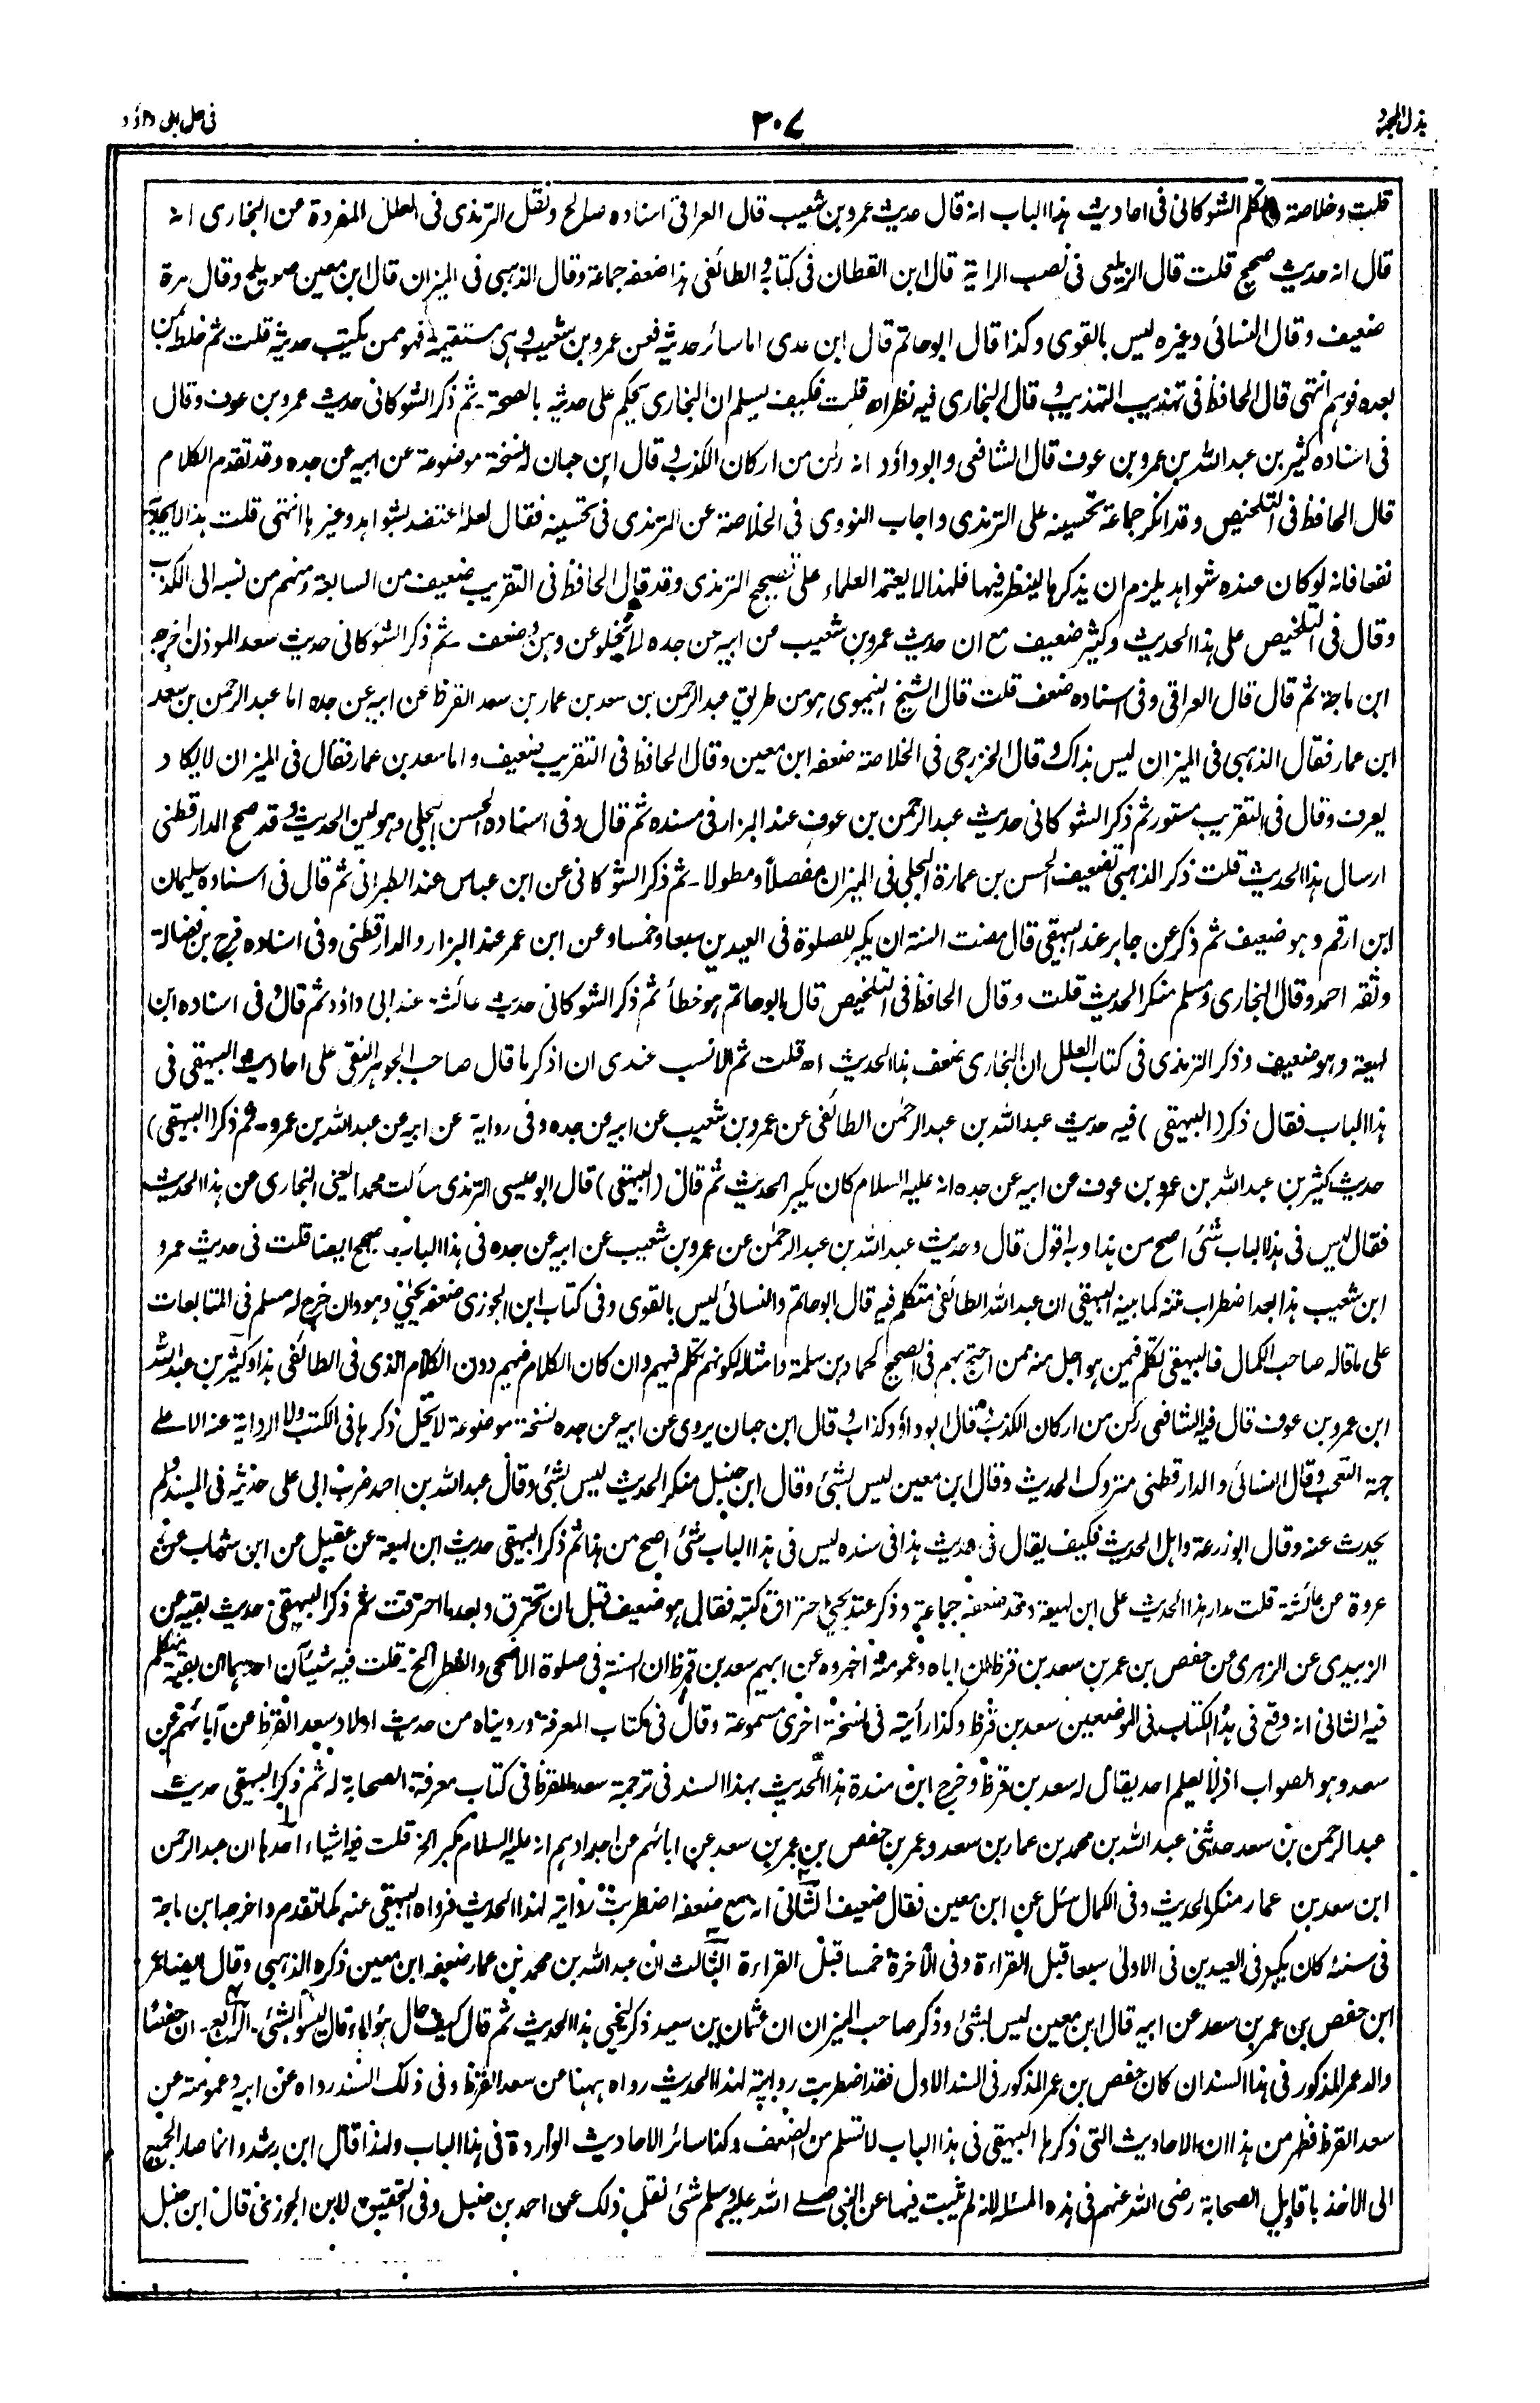 بذل المجهود
٣٠٧
فى حل ابى داؤد
قلت وخلاصة تكلم الشوكانى فى احاديث هذا الباب انه قال حديث عمرو بن شعيب قال العراقى اسناده صالح ونقل الترمذى فى العلل المفردة عن البخارى انه
قال انه حديث صحيح قلت قال الزيلعى فى نصب الراية قال ابن القطان فى كتابه والطائفى هذا ضعفه جماعة وقال الذهبى فى الميزان قال ابن معين صويلح وقال مرة
ضعيف وقال النسائى وغيره ليس بالقوى وكذا قال ابو حاتم قال ابن عدى اما سائر حديثه فعن عمرو بن شعيب وهى مستقيمة فهو ممن يكتب حديثه قلت ثم خلطه بمن
بعده فوهم انتهى قال الحافظ فى تهذيب التهذيب وقال البخارى فيه نظر اه قلت فكيف يسلم ان البخارى يحكم على حديثه بالصحة ـ ثم ذكر الشوكانى حديث عمرو بن عوف وقال
فى اسناده كثير بن عبد الله بن عمرو بن عوف قال الشافعى وابو داؤد انه ركن من اركان الكذب وقال ابن حبان له نسخة موضوعة عن ابيه عن جده وقد تقدم الكلام
قال الحافظ فى التلخيص وقد انكر جماعة تحسينه على الترمذى واجاب النووى فى الخلاصة عن الترمذى فى تحسينه فقال لعله اعتضد بشواهد وغيرها انتهى قلت هذا لا يجدى
نفعا فانه لو كان عنده شواهد يلزم ان يذكرها لينظر فيها فلهذا لا يعتمد العلماء على تصحيح الترمذى وقد قال الحافظ فى التقريب ضعيف من السابعة ومنهم من نسبه الى الكذب
وقال فى التلخيص على هذا الحديث وكثير ضعيف مع ان حديث عمرو بن شعيب عن ابيه عن جده لا يخلو عن وهن وضعف ـ ثم ذكر الشوكانى حديث سعد الموذن اخرجه
ابن ماجة ثم قال قال العراقى وفى اسناده ضعف قلت قال الشيخ النيموى هو من طريق عبد الرحمن بن سعد بن عمار بن سعد القرظ عن ابيه عن جده اما عبد الرحمن بن سعد
ابن عمار فقال الذهبى فى الميزان ليس بذاك وقال الخزرجى فى الخلاصة ضعفه ابن معين وقال الحافظ فى التقريب ضعيف واما سعد بن عمار فقال فى الميزان لا يكاد
يعرف وقال فى التقريب مستور ثم ذكر الشوكانى حديث عبد الرحمن بن عوف عند البزار فى مسنده ثم قال وفى اسناده الحسن البجلى وهو لين الحديث وقد صحح الدارقطنى
ارسال هذا الحديث قلت ذكر الذهبى تضعيف الحسن بن عمارة البجلى فى الميزان مفصلا ومطولا ـ ثم ذكر الشوكانى عن ابن عباس عند الطبرانى ثم قال فى اسناده سليمان
ابن ارقم وهو ضعيف ثم ذكر عن جابر عند البيهقى قال مضت السنة ان يكبر للصلوة فى العيدين سبعا وخمسا وعن ابن عمر عند البزار والدارقطنى وفى اسناده فرج بن فضالة
وثقه احمد وقال البخارى ومسلم منكر الحديث قلت وقال الحافظ فى التلخيص قال ابو حاتم هو خطأ ثم ذكر الشوكانى حديث عائشة عند ابى داؤد ثم قال وفى اسناده ابن
لهيعة وهو ضعيف وذكر الترمذى فى كتاب العلل ان البخارى ضعف هذا الحديث اه قلت ثم الانسب عندى ان اذكر ما قال صاحب الجوهر النقى على احاديث البيهقى فى
هذا الباب فقال ذكر (البيهقى) فيه حديث عبد الله بن عبد الرحمن الطائفى عن عمرو بن شعيب عن ابيه عن جده وفى رواية عن ابيه عن عبد الله بن عمرو ـ ثم ذكر (البيهقى)
حديث كثير بن عبد الله بن عمرو بن عوف عن ابيه عن جده انه عليه السلام كان يكبر الحديث ثم قال (البيهقى) قال ابو عيسى الترمذى سألت محمدا يعنى البخارى عن هذا الحديث
فقال ليس فى هذا الباب شئ اصح من هذا وبه اقول قال وحديث عبد الله بن عبد الرحمن عن عمرو بن شعيب عن ابيه عن جده فى هذا الباب صحيح ايضا قلت فى حديث عمرو
ابن شعيب هذا بعد اضطراب متنه كما بينه البيهقى ان عبد الله الطائفى متكلم فيه قال ابو حاتم والنسائى ليس بالقوى وفى كتاب ابن الجوزى ضعفه يحيى وهو وان خرج له مسلم فى المتابعات
على ما قاله صاحب الكمال فالبيهقى تكلم فيمن هو اجل منه ممن احتج بهم فى الصحيح كحماد بن سلمة وامثاله لكونهم تكلم فيهم وان كان الكلام فيهم دون الكلام الذى فى الطائفى هذا وكثير بن عبد الله
ابن عمرو بن عوف قال فيه الشافعى ركن من اركان الكذب وقال ابو داؤد كذاب وقال ابن حبان يروى عن ابيه عن جده نسخة موضوعة لا يحل ذكرها فى الكتب ولا الرواية عنه الا على
جهة التعجب وقال النسائى والدارقطنى متروك الحديث وقال ابن معين ليس بشئ وقال ابن حنبل منكر الحديث ليس بشئ وقال عبد الله بن احمد ضرب ابى على حديثه فى المسند ولم
يحدث عنه وقال ابو زرعة واهى الحديث فكيف يقال فى حديث هذا فى سنده ليس فى هذا الباب شئ اصح من هذا ثم ذكر البيهقى حديث ابن لهيعة عن عقيل عن ابن شهاب عن
عروة عن عائشة قلت مدار هذا الحديث على ابن لهيعة وقد ضعفه جماعة وذكر عند يحيى احتراق كتبه فقال هو ضعيف قبل ان تحترق وبعد ما احترقت ثم ذكر البيهقى حديث بقيه عن
الزبيدى عن الزهرى عن حفص بن عمر بن سعد بن قرظ ان اباه وعمومته اخبروه عن ابيهم سعد بن قرظ ان السنة فى صلوة الاضحى والفطر الخ ـ قلت فيه شيئان احدهما ان بقية متكلم
فيه الثانى انه وقع فى هذا الكتاب فى الموضعين سعد بن قرظ وكذا رأيته فى نسخة اخرى مسموعة وقال فى كتاب المعرفة ورويناه من حديث اولاد سعد القرظ عن آبائهم عن
سعد وهو الصواب اذ لا يعلم احد يقال له سعد بن قرظ وخرج ابن مندة هذا الحديث بهذا السند فى ترجمة سعد القرظ فى كتاب معرفة الصحابة له ثم ذكر البيهقى حديث
عبد الرحمن بن سعد حدثنى عبد الله بن محمد بن عمار بن سعد وعمر بن حفص بن عمر بن سعد عن ابائهم عن اجدادهم انه عليه السلام كبر الخ قلت فيه اشياء احدها ان عبد الرحمن
ابن سعد بن عمار منكر الحديث وفى الكمال سئل عن ابن معين فقال ضعيف الثانى انه مع ضعفه اضطربت روايته لهذا الحديث فرواه البيهقى عنه كما تقدم واخرجه ابن ماجة
فى سننه كان يكبر فى العيدين فى الاولى سبعا قبل القراءة وفى الآخرة خمسا قبل القراءة الثالث ان عبد الله بن محمد بن عمار ضعفه ابن معين ذكره الذهبى وقال ايضا عمر
ابن حفص بن عمر بن سعد عن ابيه قال ابن معين ليس بشئ وذكر صاحب الميزان ان عثمان بن سعيد ذكر ليحيى هذا الحديث ثم قال كيف حال هؤلاء قال ليسوا بشئ ـ الرابع ـ ان حفصا
والد عمر المذكور فى هذا السند ان كان حفص بن عمر المذكور فى السند الاول فقد اضطربت روايته لهذا الحديث رواه ههنا عن سعد القرظ وفى ذلك السند رواه عن ابيه وعمومته عن
سعد القرظ فظهر من هذا ان الاحاديث التى ذكرها البيهقى فى هذا الباب لا تسلم من الضعف وكذا سائر الاحاديث الواردة فى هذا الباب ولهذا قال ابن رشد وانما صار الجميع
الى الاخذ باقاويل الصحابة رضى الله عنهم فى هذه المسئلة لانه لم يثبت فيها عن النبى صلى الله عليه وسلم شئ نقل ذلك عن احمد بن حنبل وفى التحقيق لابن الجوزى قال ابن حنبل